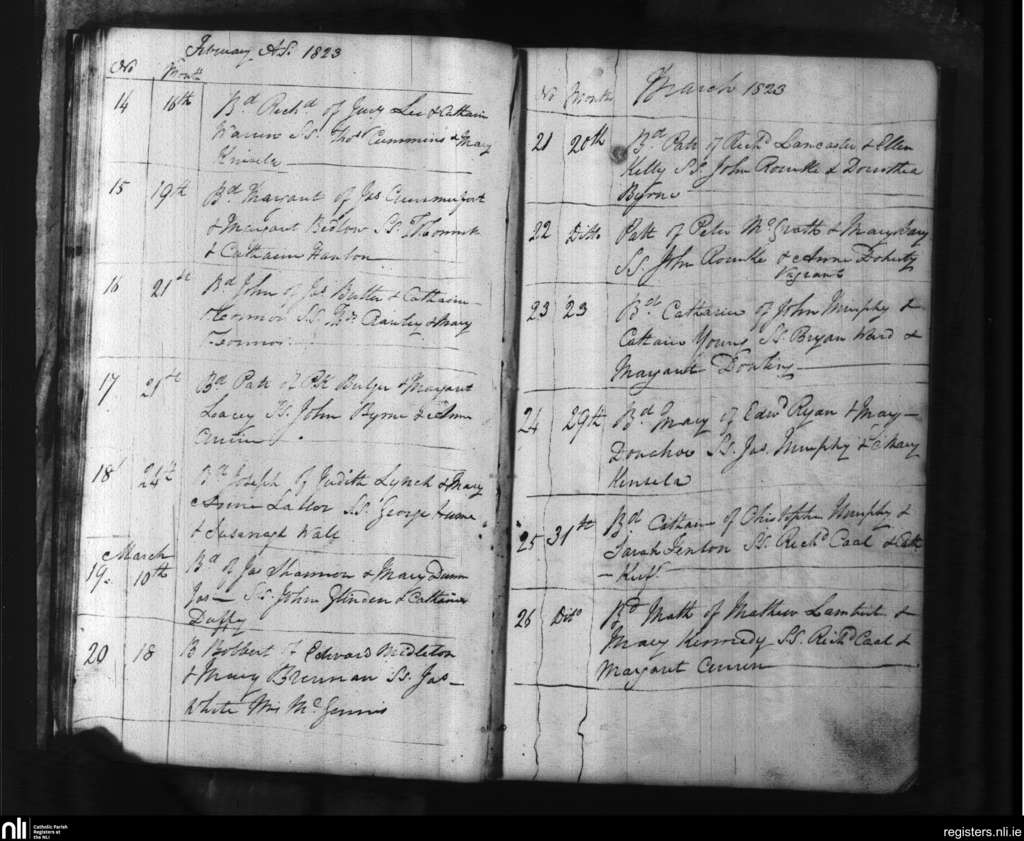 February A.D. 1823
No Month
14 18th Bd Richd of Judy Lee & Catharin
Warren SS. Thos Cummins & Mary
Kinsela
15 19th Bd Margaret of Jas Cummerfort
& Margaret SS.
& Catharin Hanlon
16 21st Bd John of Jas Butler & Catharin
Connor SS. & Mary
Connor
17 21st Bd Patk of Pk Bulger & Margaret
Leacey SS. John Byrne & Anne
18 24th Bd Joseph of Judith Lynch & Mary
Anne Laller SS. George
& Susanagh
March
19 10th Bd of Jas Shannon & Mary Dunn
Jas — SS. John & Catharine
Duffy
20 18 B Bolbert of Edward Midleton
& Mary Brennan SS. Jas —
White Mrs Mc Gennis
No Month March 1823
21 20th Bd Patk of Richd Lancaster & Ellen
Kelly SS. John Rourke & Dorothea
Byrne
22 Ditto Patk of Peter McGrath & Mary
SS. John Rourke & Anne Doherty
Vagrants
23 23 Bd Catharin of John Murphy &
Catharin Young SS. Bryan Ward &
Margaret
24 29th Bd Mary of Edwd Ryan & Mary —
Donohoe SS. Jas. Murphy & Mary
Kinsela
25 31st Bd Catharin of Christopher Murphy &
Sarah Fenton SS. Richd Caal & Cath
26 Dito Bd Math of Mathew Lambert &
Mary Kennedy SS. Richd Caal &
Margaret Curren
nli Catholic Parish
Registers at
the NLI
registers.nli.ie